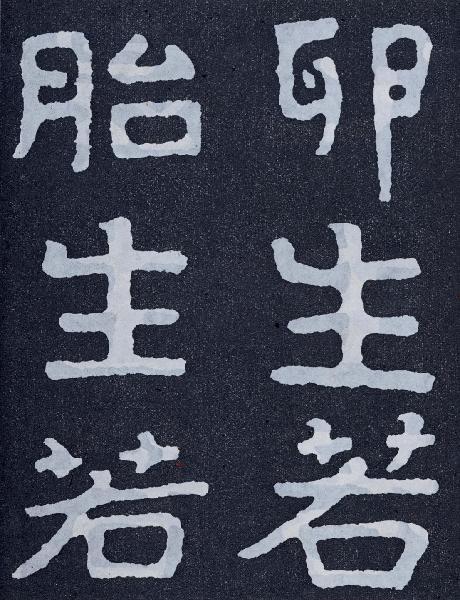 卵生若
胎生若